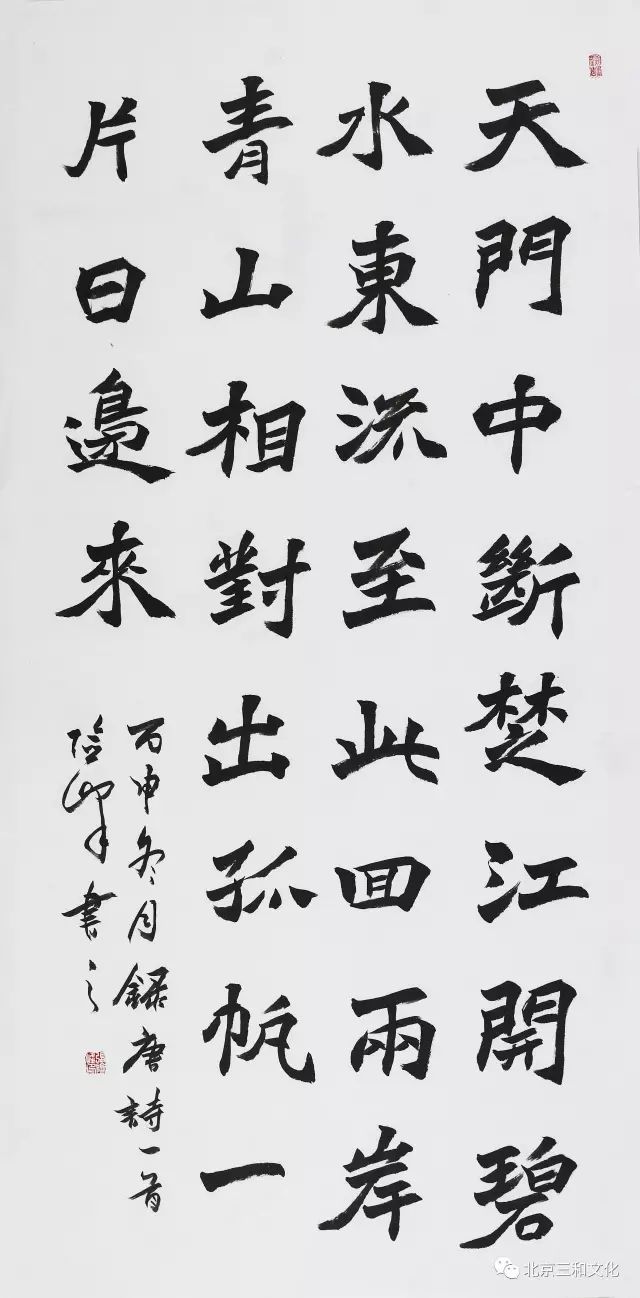 天門中斷楚江開碧
水東流至此回兩岸
青山相對出孤帆一
片日邊來
丙申冬月錄唐詩一首
峰書之
北京三和文化